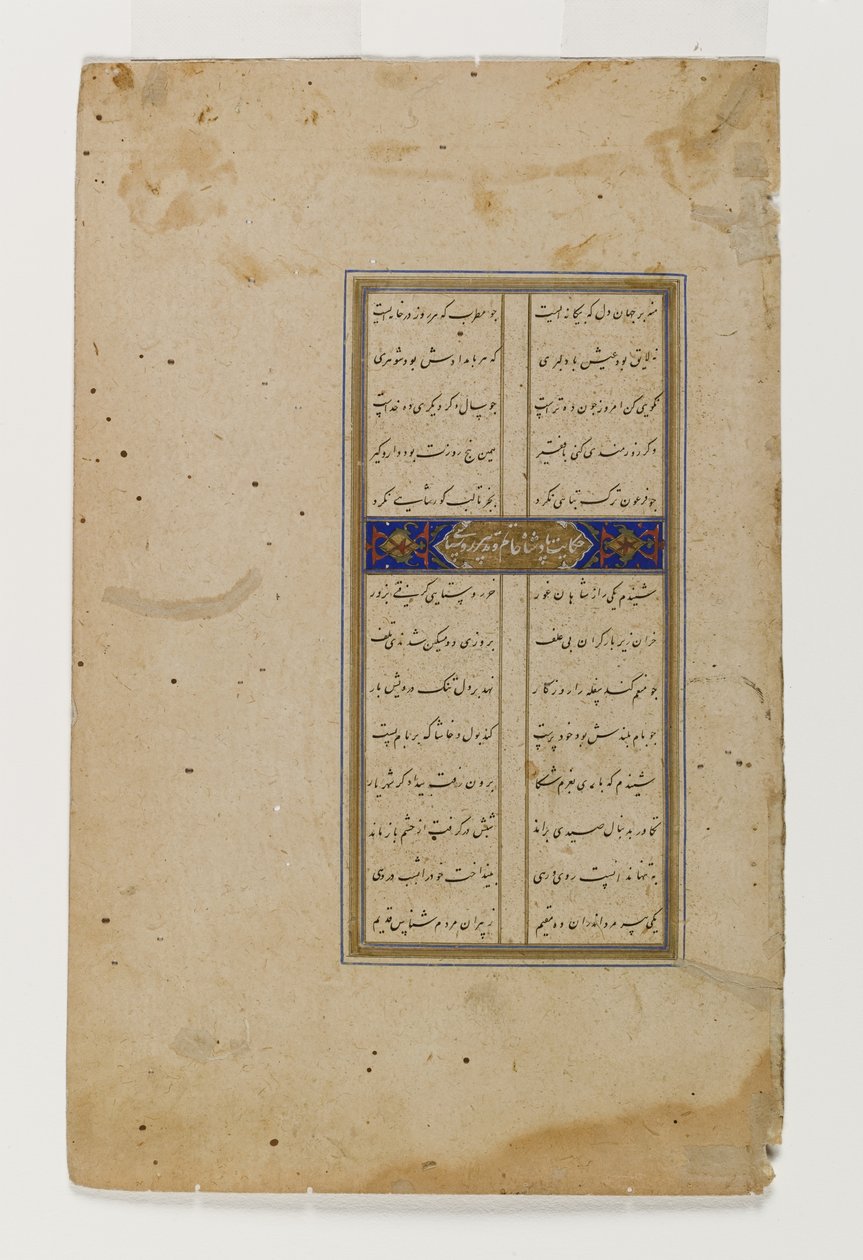 منه بر جهان دل که بیکانه ایست جو مطرب که هر روز در خانه ایست
نه لایق بود عیش با دلبری که هر بامدادش بود شوهری
نکویی کن امروز جون ده تراست جو سال دکر دیکری ده خداست
وکر زورمندی کنی با فقیر همین پنج روزت بود دار و کیر
جو فرعون ترک تباهی نکرد بجز تا لب کور شاهی نکرد
حکایت پادشاه ظالم و پیر روستایی
شنیدم یکی را ز شاهان غور خر روستایی کرفتی بزور
خران زیر بار کران بی علف بروزی دو مسکین شدندی تلف
جو منعم کند سفله را روزکار نهد بر دل تنک درویش بار
جو بام بلندش بود خود پرست کند بول و خاشاک بر بام پست
شنیدم که باری بعزم شکار برون رفت بیدادکر شهریار
تکاور بدنبال صیدی براند شبش درکرفت از حشم باز ماند
به تنها ندانست روی و رهی بینداخت خود را شب در دهی
یکی پیر مرد اندران ده مقیم ز پیران مردم شناس قدیم